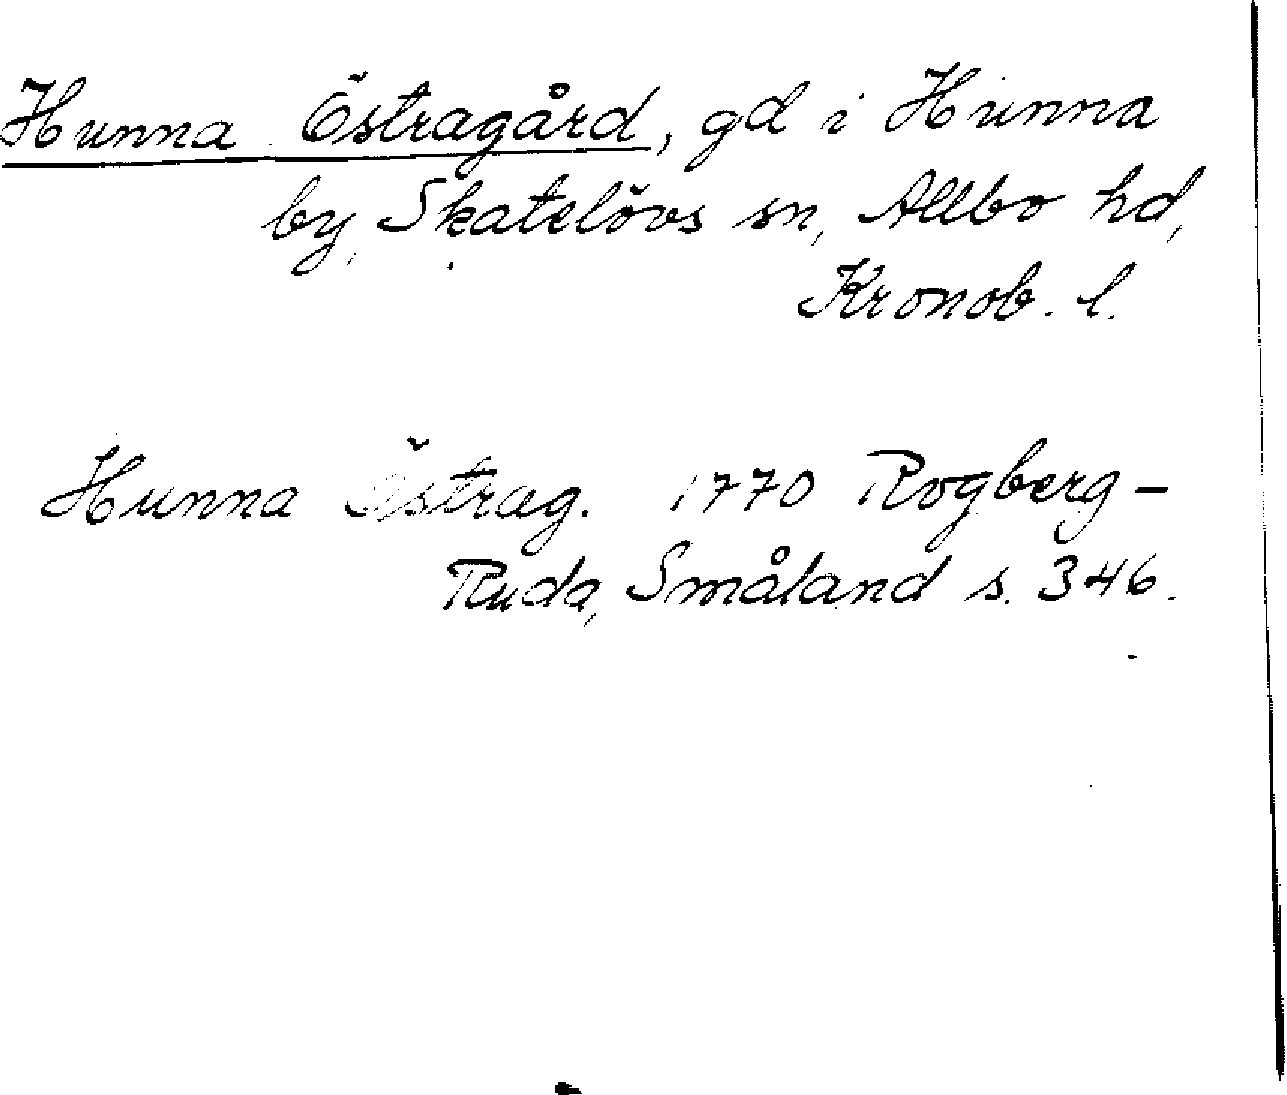 Hunna Östragård, gd i Hunna
by, Skatelövs sn, Allbo hd,
Kronob. l.
Hunna Östrag. 1770 Rogberg-
Ruda, Småland s. 346.